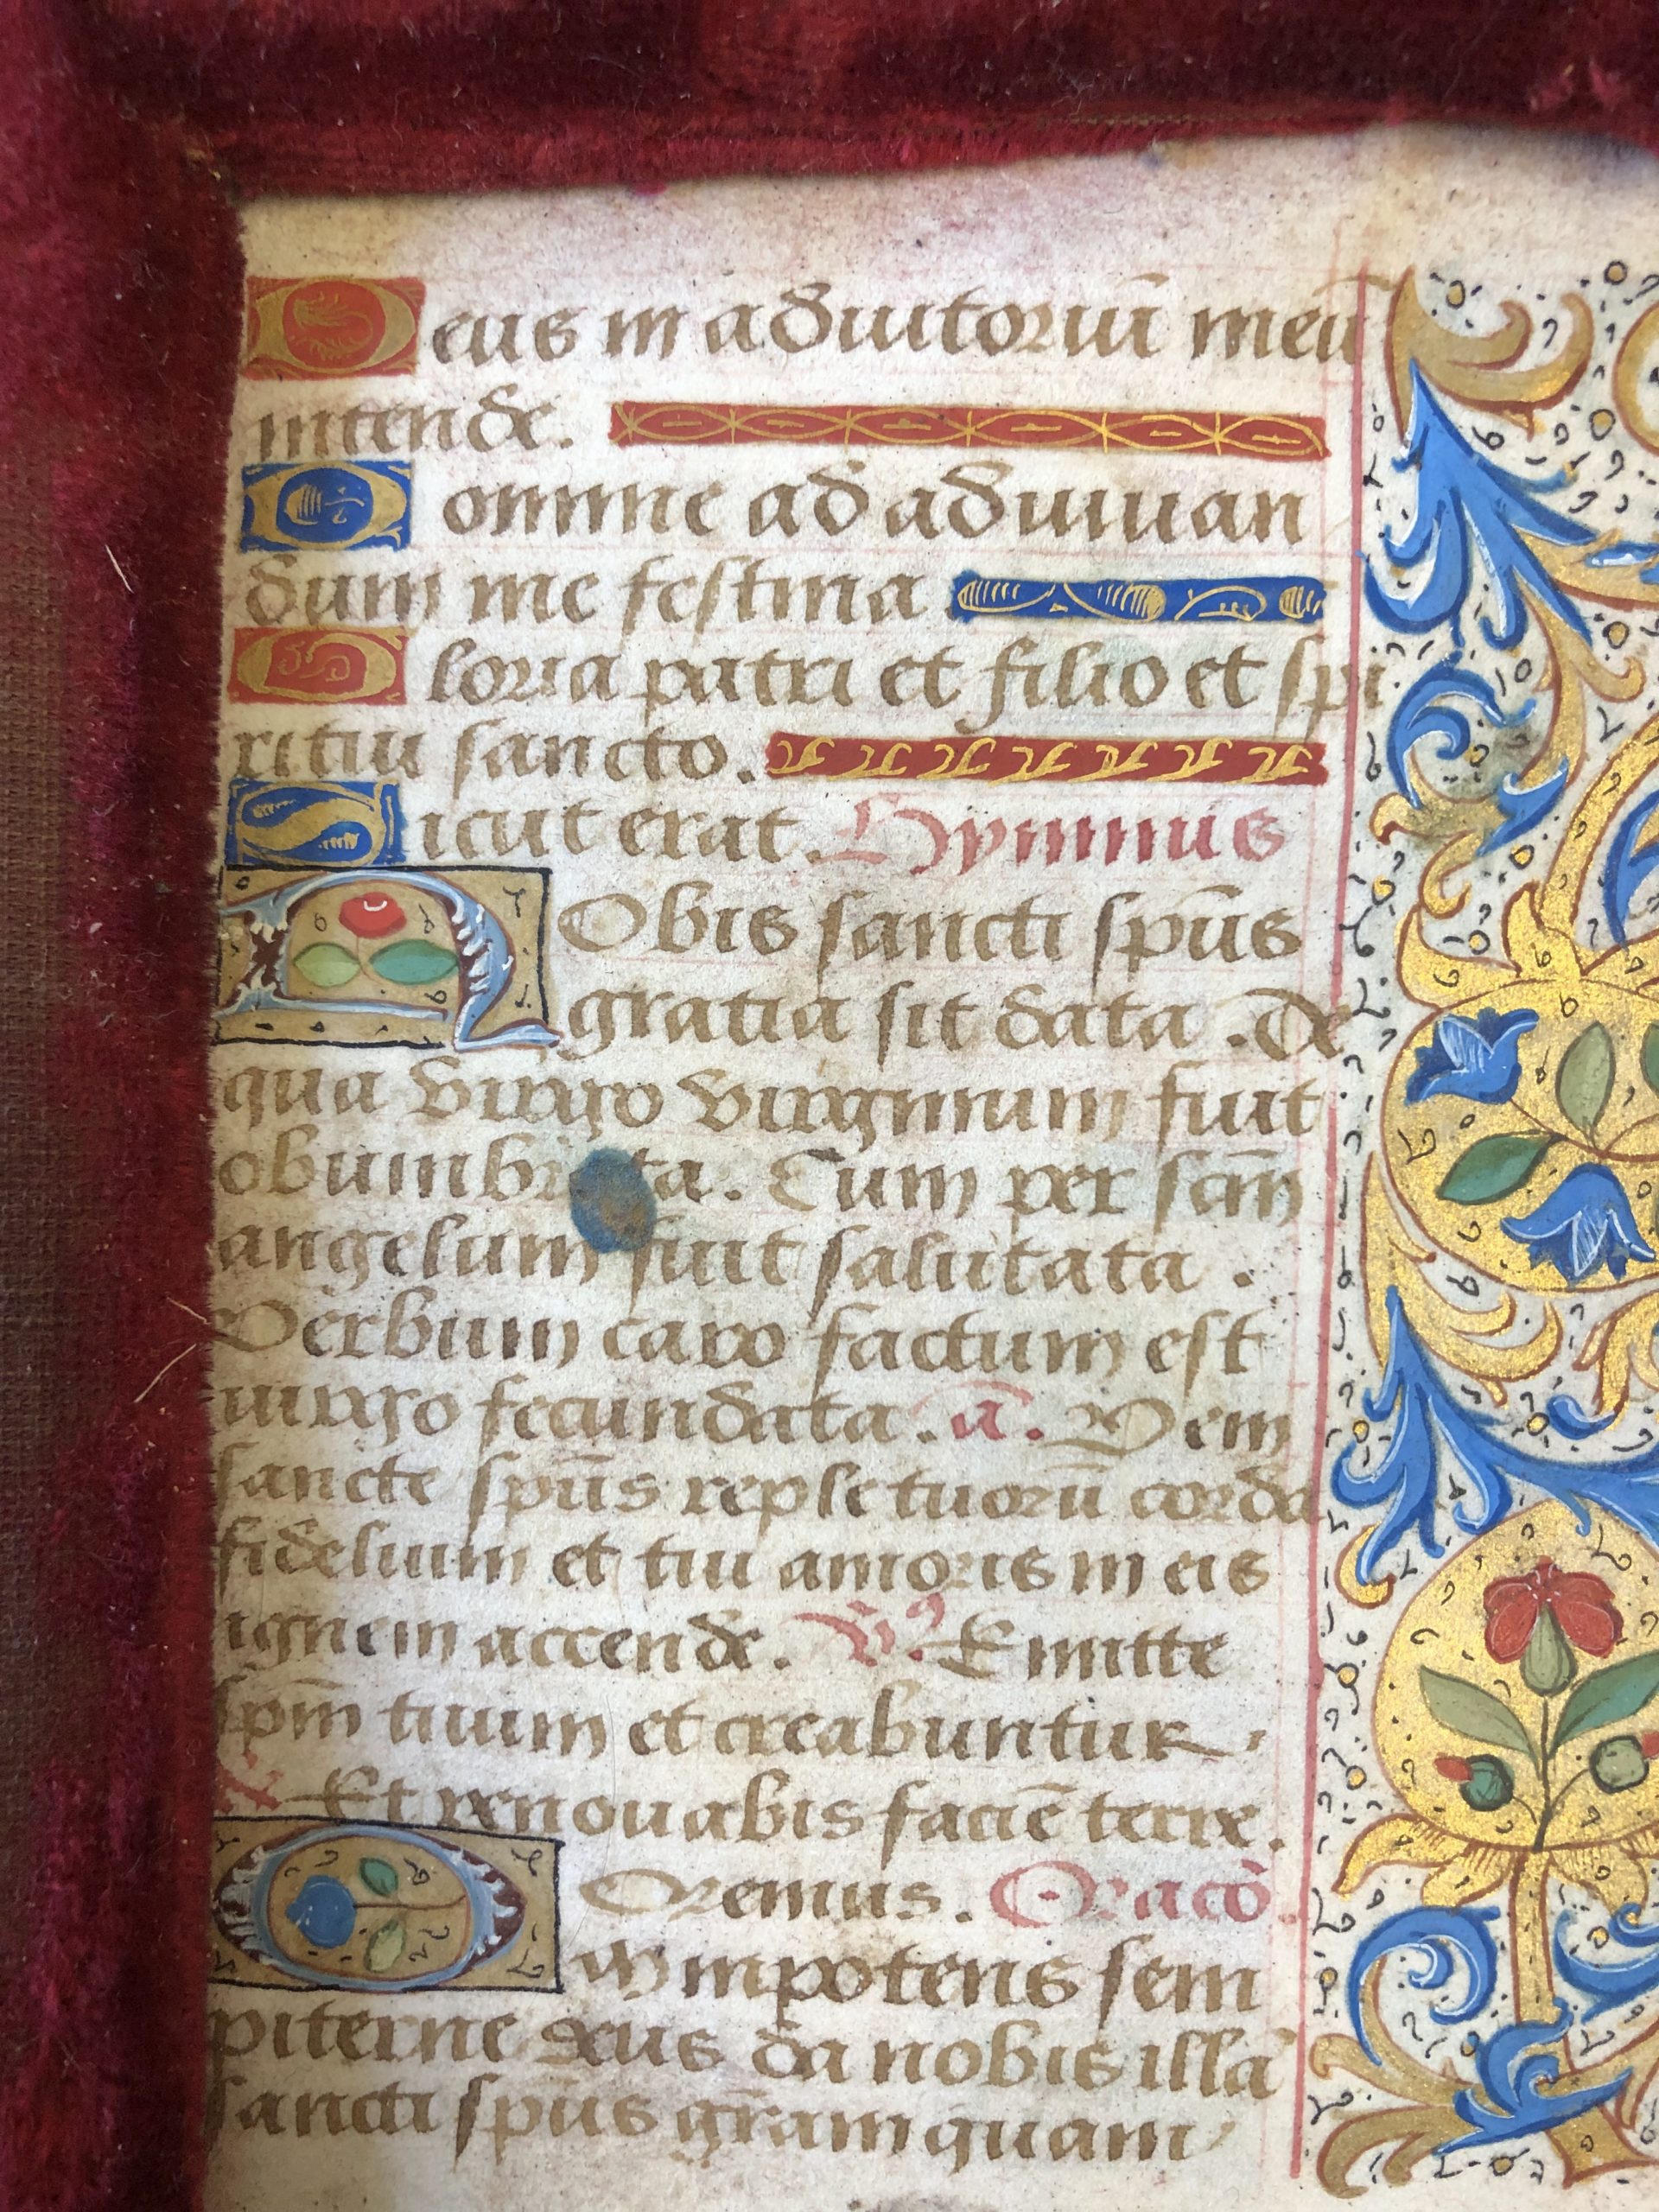 Deus in adiutoriū meū
intende.
Domine ad adiuuan
dum me festina
Gloria patri et filio et spi
ritui sancto.
Sicut erat. Hymnus
NObis sancti spūs
gratia sit data. De
qua virgo virginum fuit
obumbrata. Cum per sām
angelum fuit salutata.
Verbum caro factum est
uirgo fecundata. a. Veni
sancte spūs reple tuorū corda
fidelium et tui amoris in eis
ignem accende. V. Emitte
spm̄ tuum et creabuntur
Et renouabis faciē terre.
Oremus. Oracō
Omnipotens sem
piterne deus da nobis illā
sancti spūs grām quam